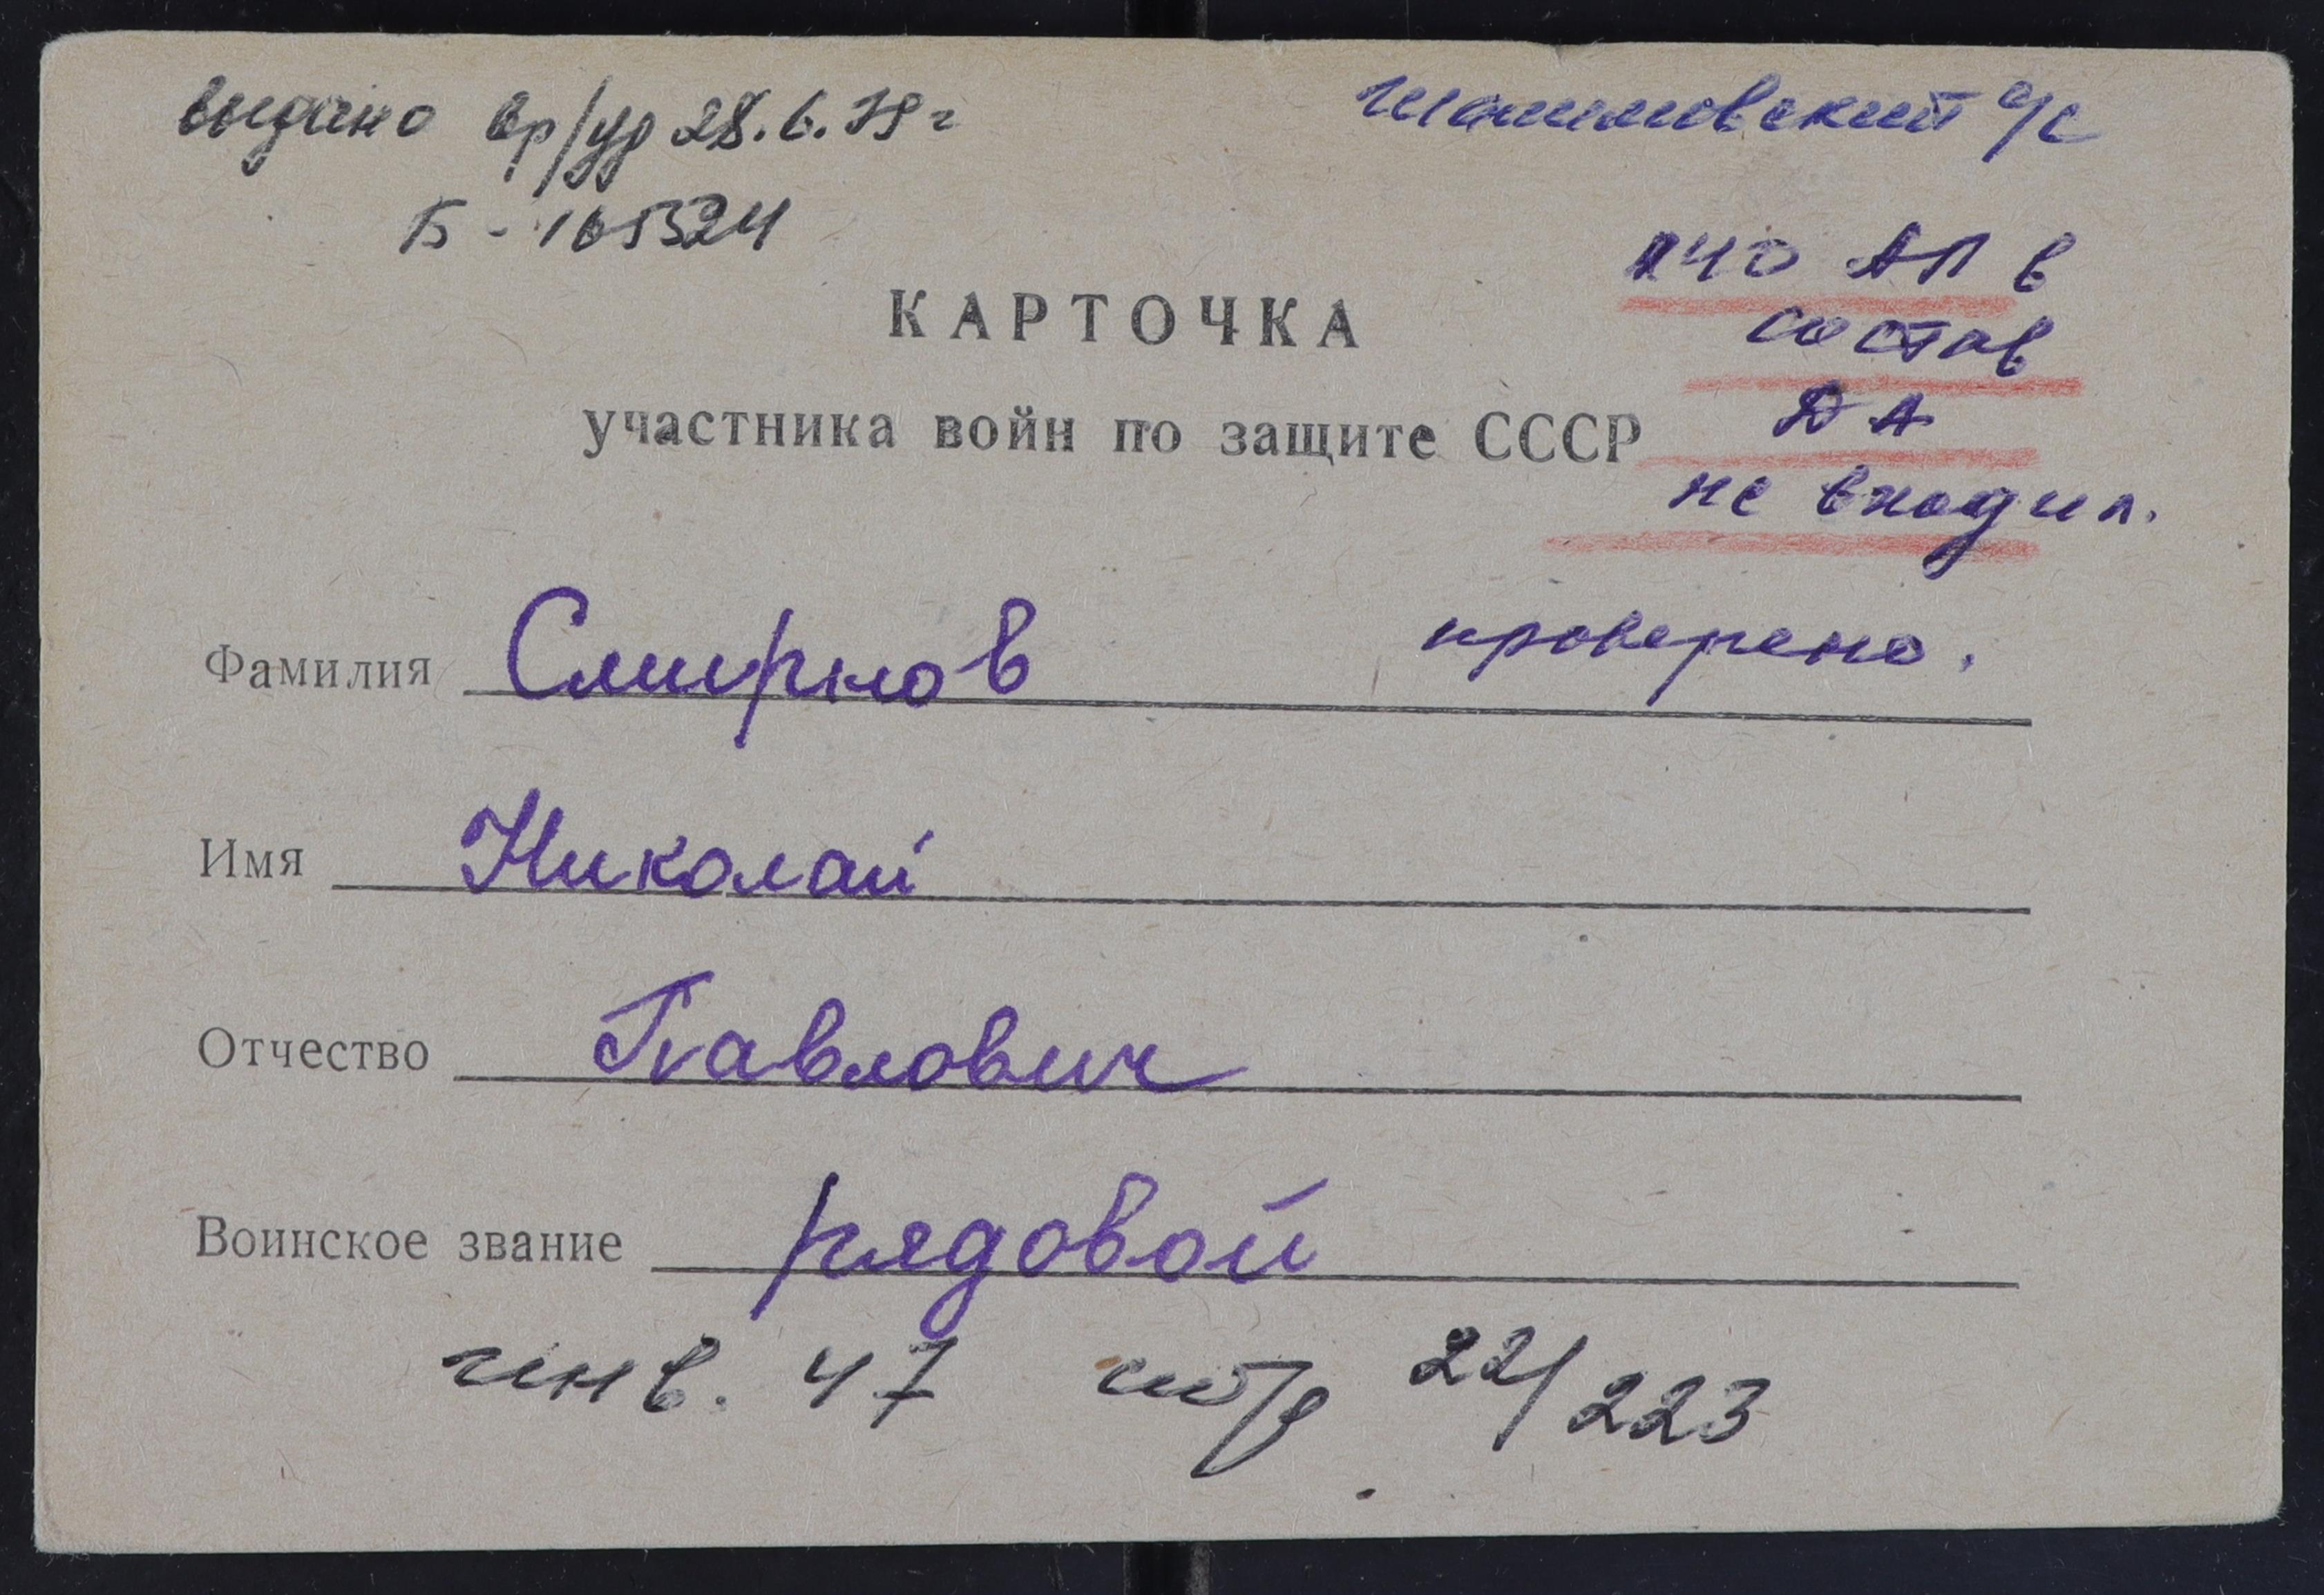 выдано вр/уд 28.6.79 г
с/с
Б - 165324
140 АП в
состав
ДА
не входил.
КАРТОЧКА
участника войн по защите СССР
проверено.
Фамилия Смирнов
Имя Николай
Отчество Павлович
Воинское звание рядовой
инв. 47 22/223